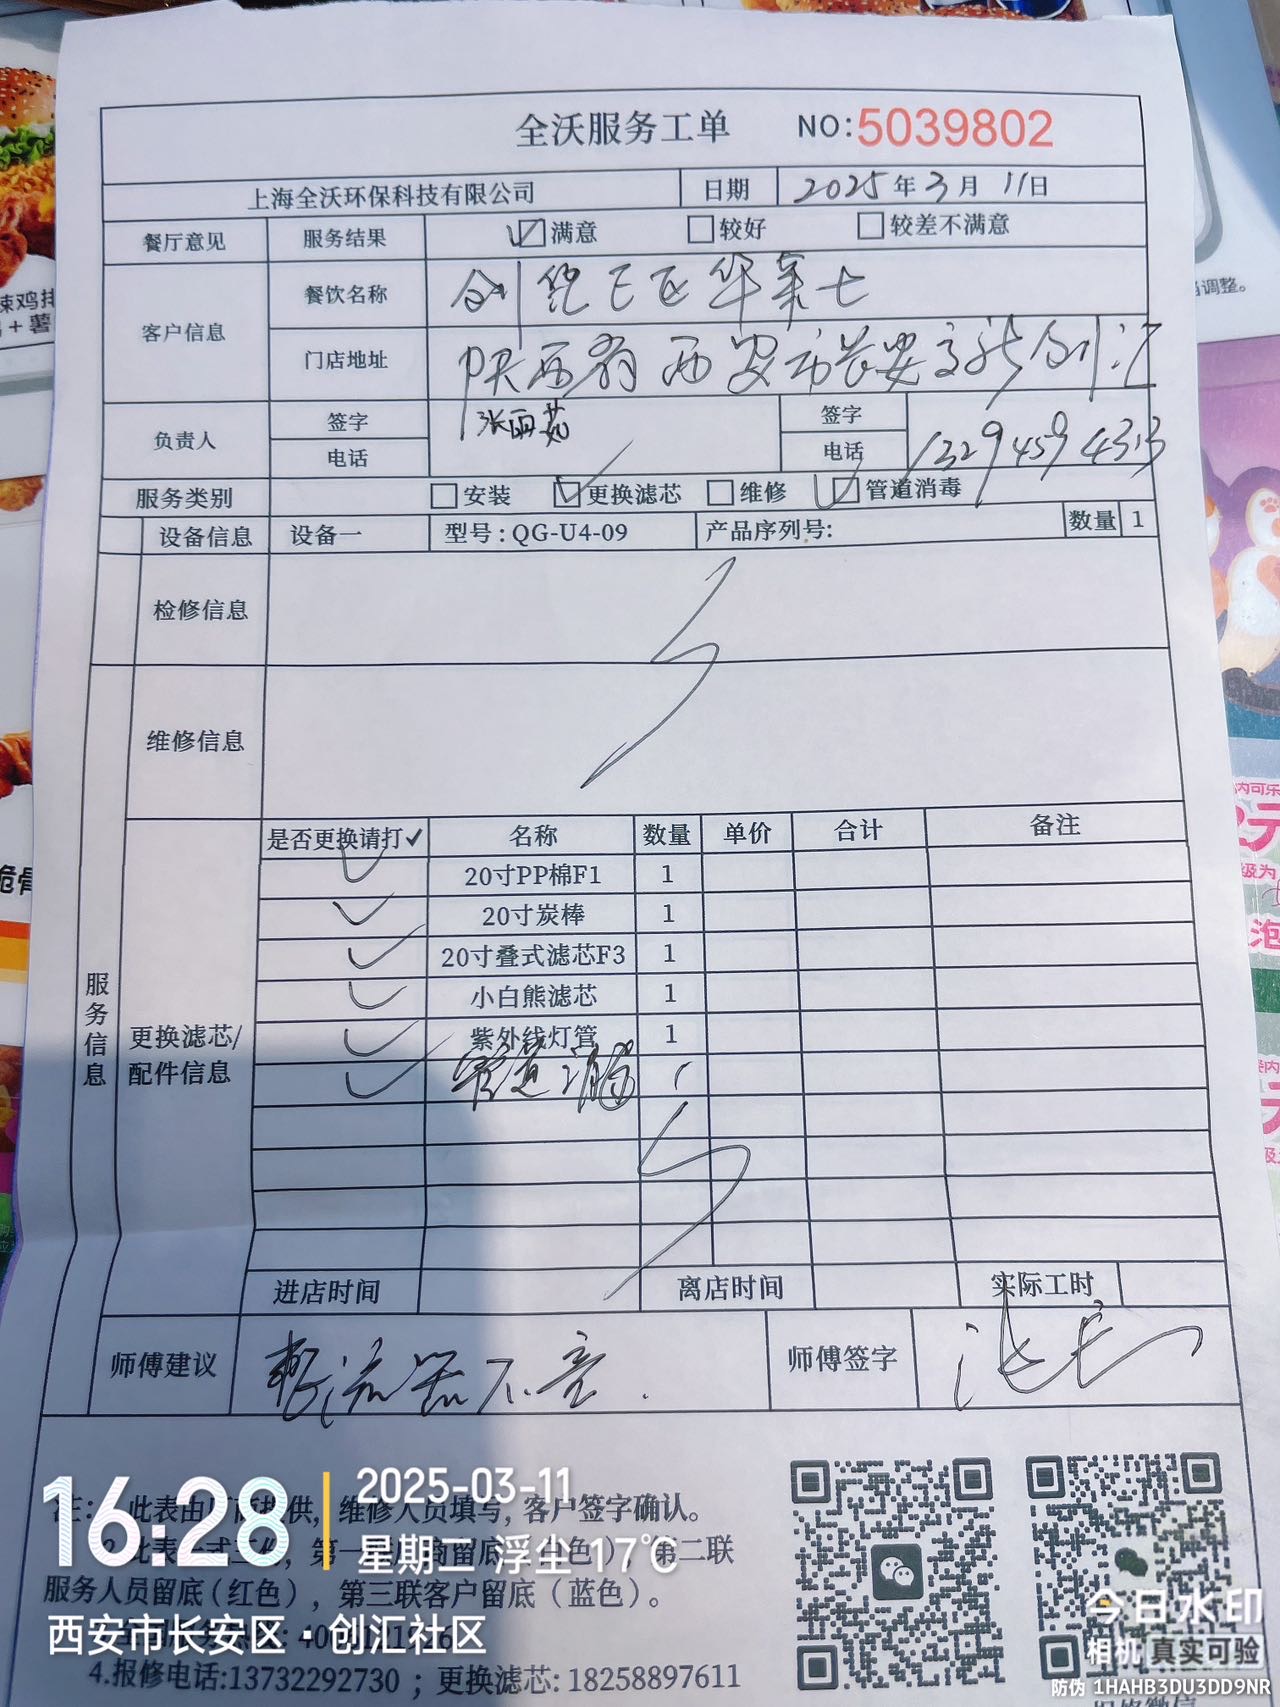 全沃服务工单 NO:5039802
上海全沃环保科技有限公司 日期 2025年3月11日
餐厅意见 服务结果 ☑满意 □较好 □较差不满意
客户信息 餐饮名称 创 华莱士
门店地址 陕西省西安市长安 创汇
负责人 签字 张 茹 签字
电话 电话 13294594313
服务类别 □安装 ☑更换滤芯 □维修 ☑管道消毒
设备信息 设备一 型号:QG-U4-09 产品序列号: 数量 1
检修信息
维修信息
服务信息
更换滤芯/
配件信息
是否更换请打✓ 名称 数量 单价 合计 备注
✓ 20寸PP棉F1 1
✓ 20寸炭棒 1
✓ 20寸叠式滤芯F3 1
✓ 小白熊滤芯 1
✓ 紫外线灯管 1
✓ 管道消毒 1
进店时间 离店时间 实际工时
师傅建议 整流器不亮. 师傅签字
注: 此表由 供,维修人员填写,客户签字确认。
第二联
服务人员留底(红色),第三联客户留底(蓝色)。
4.报修电话:13732292730;更换滤芯:18258897611
16:28
2025-03-11
星期二 浮尘 17℃
西安市长安区·创汇社区
今日水印
相机 真实可验
防伪 1HAHB3DU3DD9NR